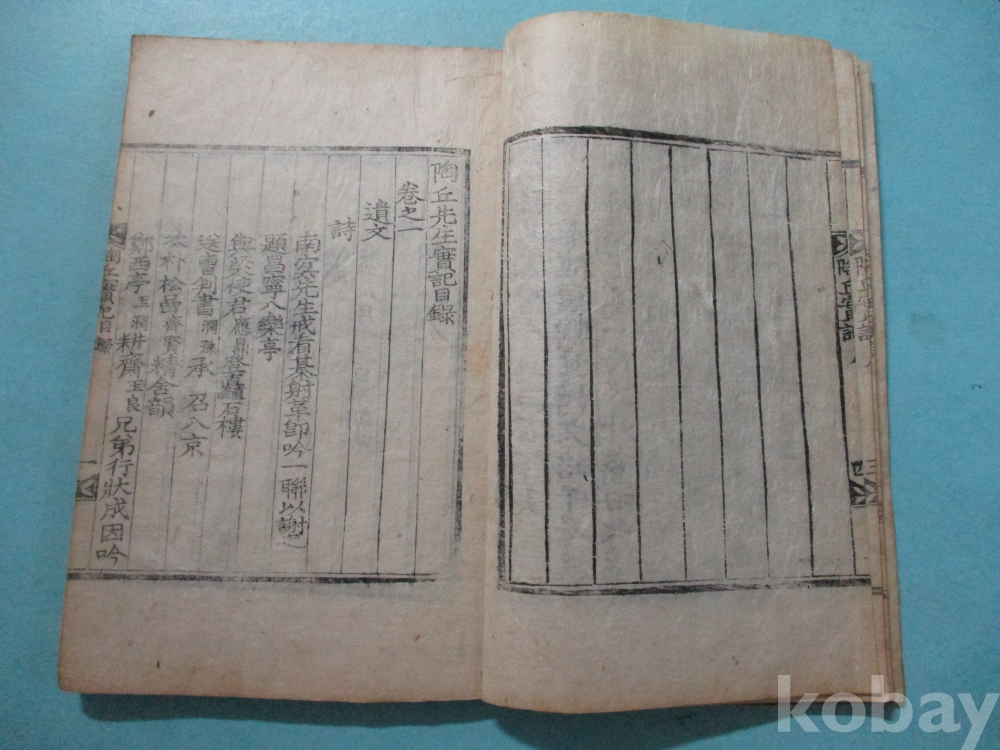 陶丘實記
四
陶丘先生實記目錄
卷之一
遺文
詩
南冥先生戒看棊射革卽吟一聯以謝之
題昌寧八樂亭
與梁使君應鼎登矗石樓
送曺判書潤孫承召入京
次朴松嵒齊賢精舍韻
鄭西亭玉潤耕齋玉良兄弟行狀成因吟
陶丘實記目錄
一
kobay